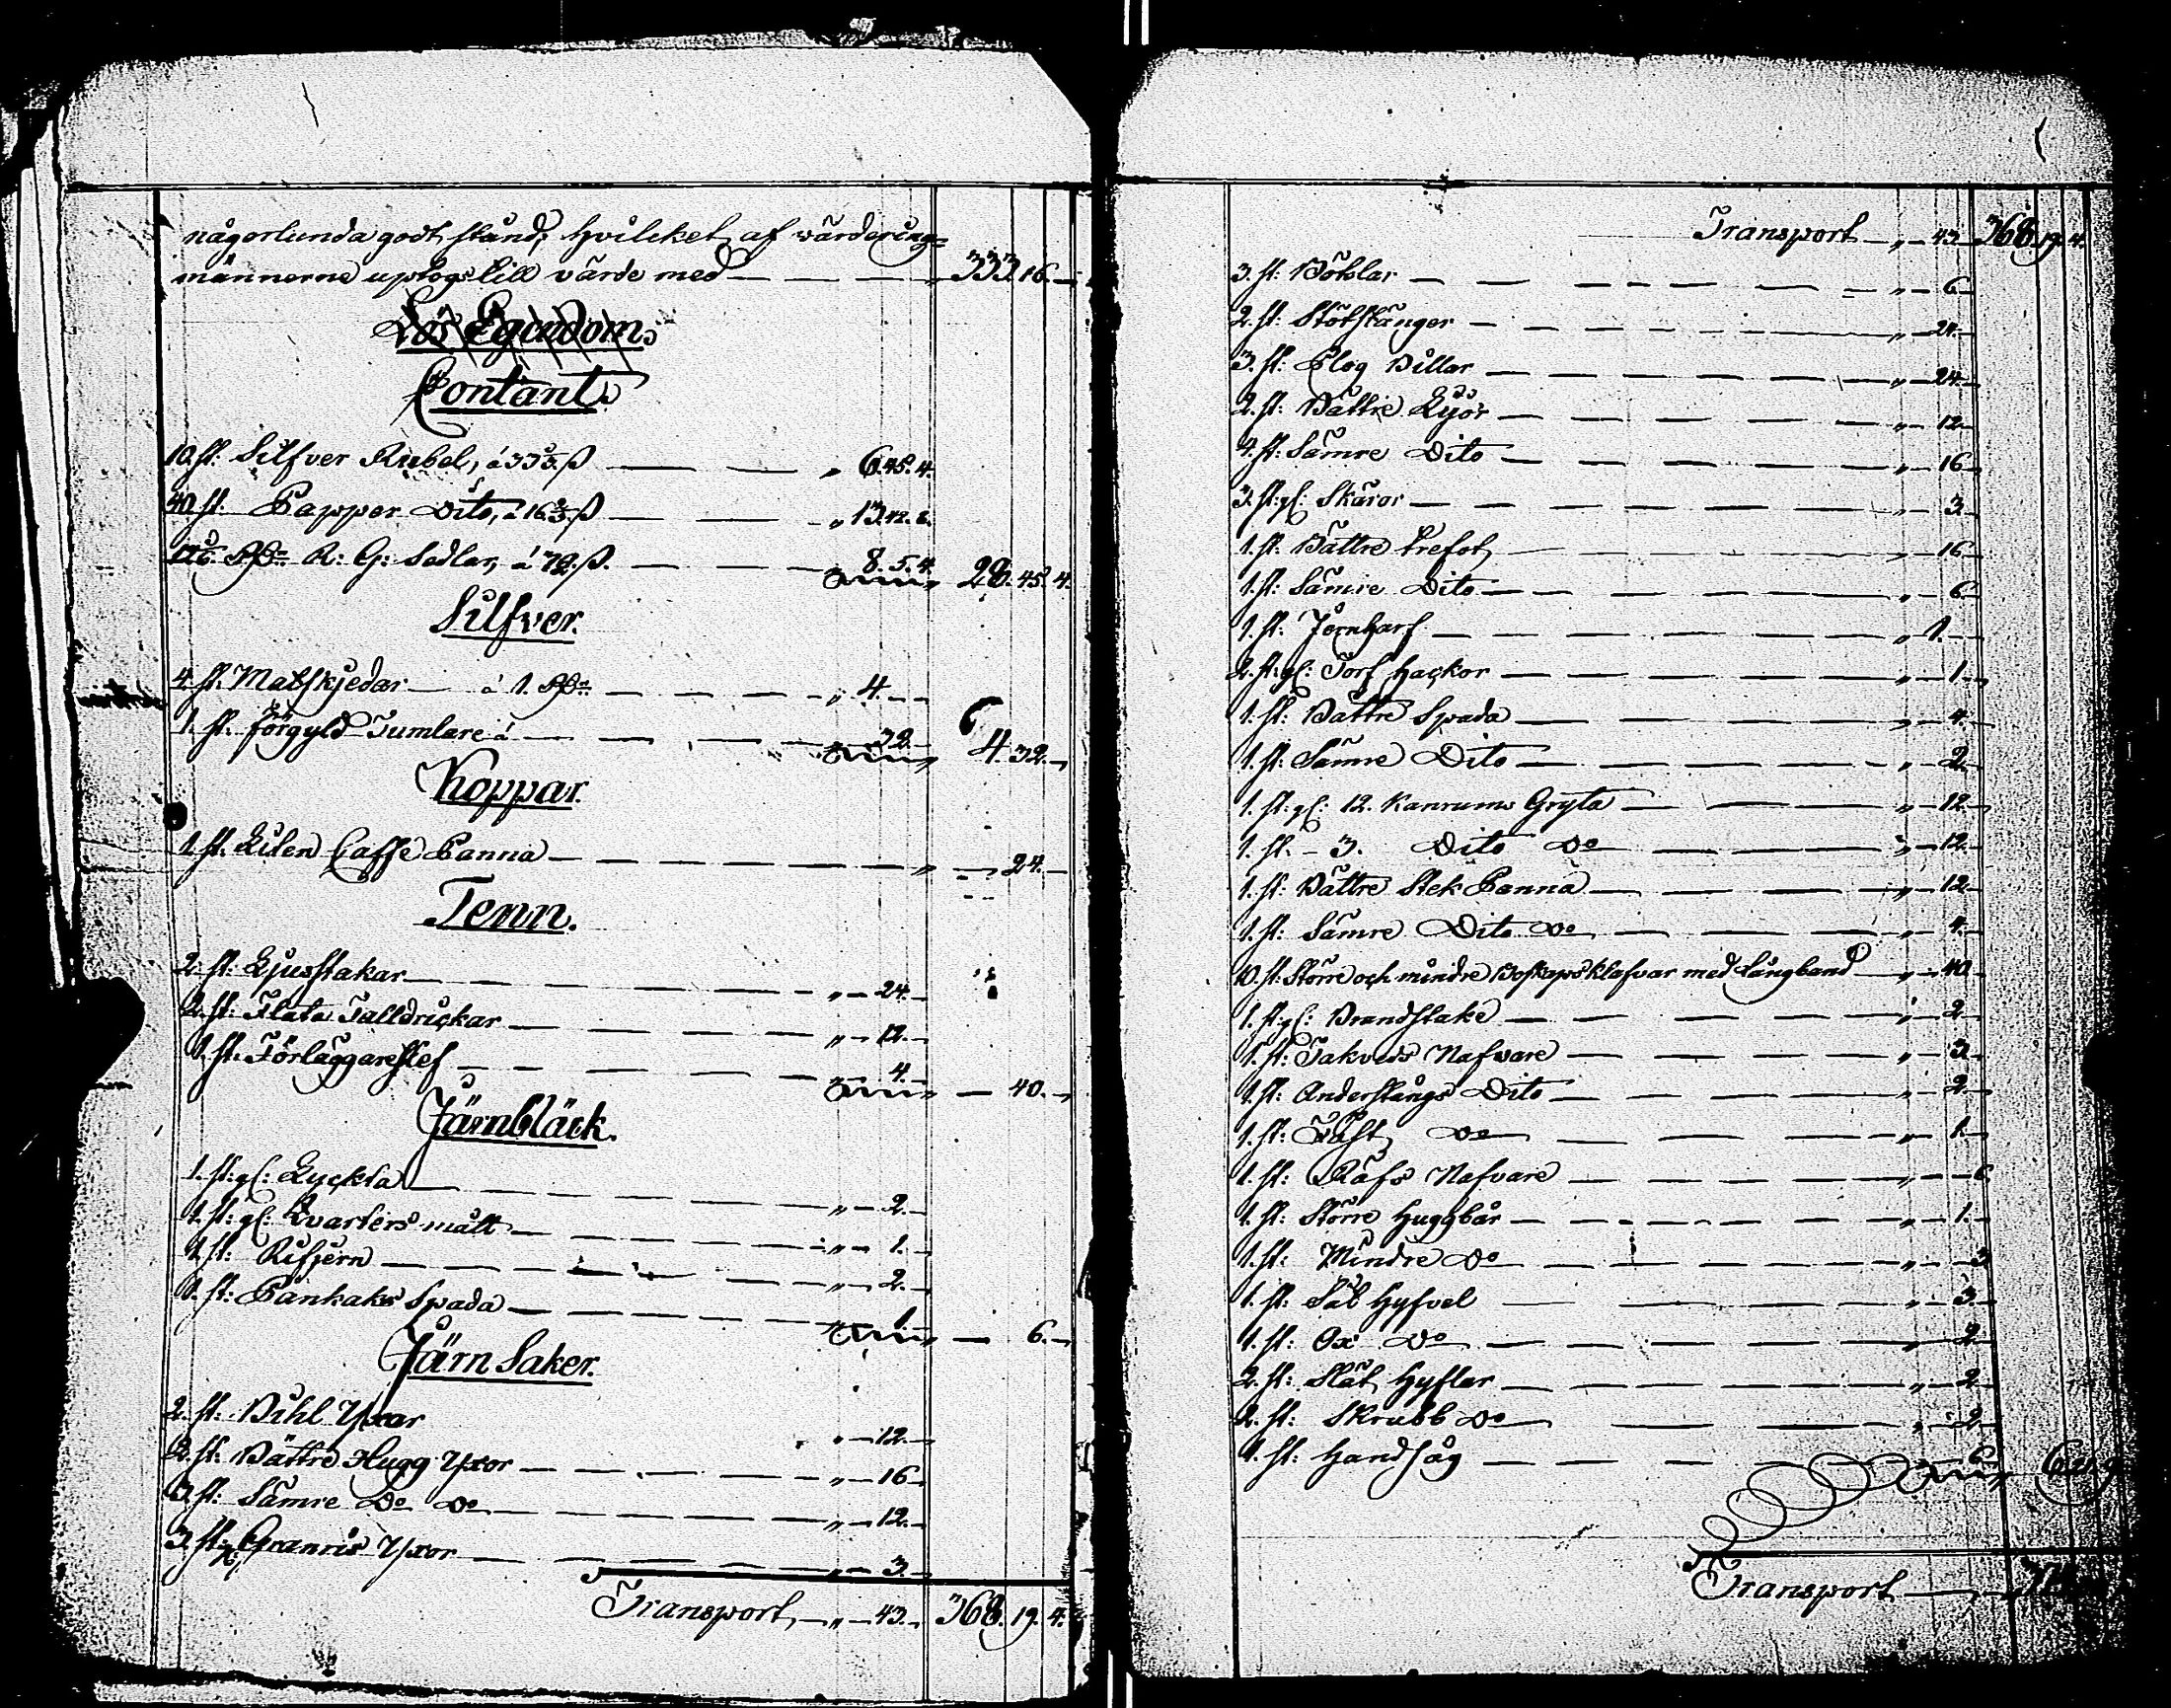 någorlunda godt stånd, hvilcket af wärdering=
männerne uptogs till värde med — 333.16.—
Lös Egendom.
Contant.
10. st. Silfver Rubel, á 33⅗ ß — „ 6.45.4.
40. st. Papper Dito, á 16⅔ ß — „ 13.42.8.
R: G: Sedlar, á 72. ß. — 8.5.4. 28.45.4.
Silfver.
4. st. Matskjedar — á 1. — „ 4.—
1. st. förgyld Tumlare á — 32.— 4.32.—
Koppar.
1. st. Liten Caffe Panna — „ — 24.—
Tenn.
2. st: Ljusstakar — „ — 24.—
2. st: Flata Talldrickar — „ — 12.—
1. st. Förläggareslef — 4.— — 40.—
Järnbläck.
1. st: gl: Lyckta — „ — 2.—
1. st: gl: Kvarters mått — „ — 1.—
1. st: Rifjern — „ — 2.—
1. st: Pankaks Spada — 1.— — 6.—
Järn Saker.
2. st: Bihl Yxor „ — 12.—
2. st: Bättre Hugg Yxor — „ — 16.—
3. st: Sämre Do Do — „ — 12.—
3. st: Granris Yxor — „ — 3.—
Transport — „ — 43.— 368.19.4.
Transport — „ — 43. 368.19.4.
3. st: Böklar — „ — 6.—
2. st: Stötstänger — „ — 24.—
3. st: Plog Billar — „ — 24.—
2. st: Bättre Lyor — „ — 12.—
4. st: Sämre Dito — „ — 16.—
3. st: gl: Skäror — „ — 3.—
1. st. Bättre trefot — „ — 16.—
1. st: Sämre Dito — „ — 6.—
1. st. Jernharf — „ 1.—
2. st: gl: Torf hackor — „ — 1.—
1. st: Bättre Spada — „ — 4.—
1. st: Sämre Dito — „ — 2.—
1. st: gl: 12. Kanrums Gryta — „ — 12.—
1. st. – 3. Dito Do — „ — 12.—
1. st: Bättre Stek Panna — „ — 12.—
1. st: Sämre Dito Do — „ — 4.—
10. st: Större och mindre Boskapsklafvar med Långband — „ — 40.—
1. st: gl: Brandstake — „ — 2.—
1. st: Takveds Nafvare — „ — 3.—
1. st: Anderstångs Dito — „ — 2.—
1. st: Do — „ — 1.—
1. st: Räfs Nafvare — „ — 6.
1. st: Större Huggbår — „ — 1.—
1. st: Mindre Do — „ — 3
1. st: Hyfvel — „ — 3.—
1. st: Ox Do — „ — 2.—
2. st: Slät Hyflar — „ — 2.—
2. st: Skrubb Do — „ — 2.—
1. st: Handsåg — 6.
Transport